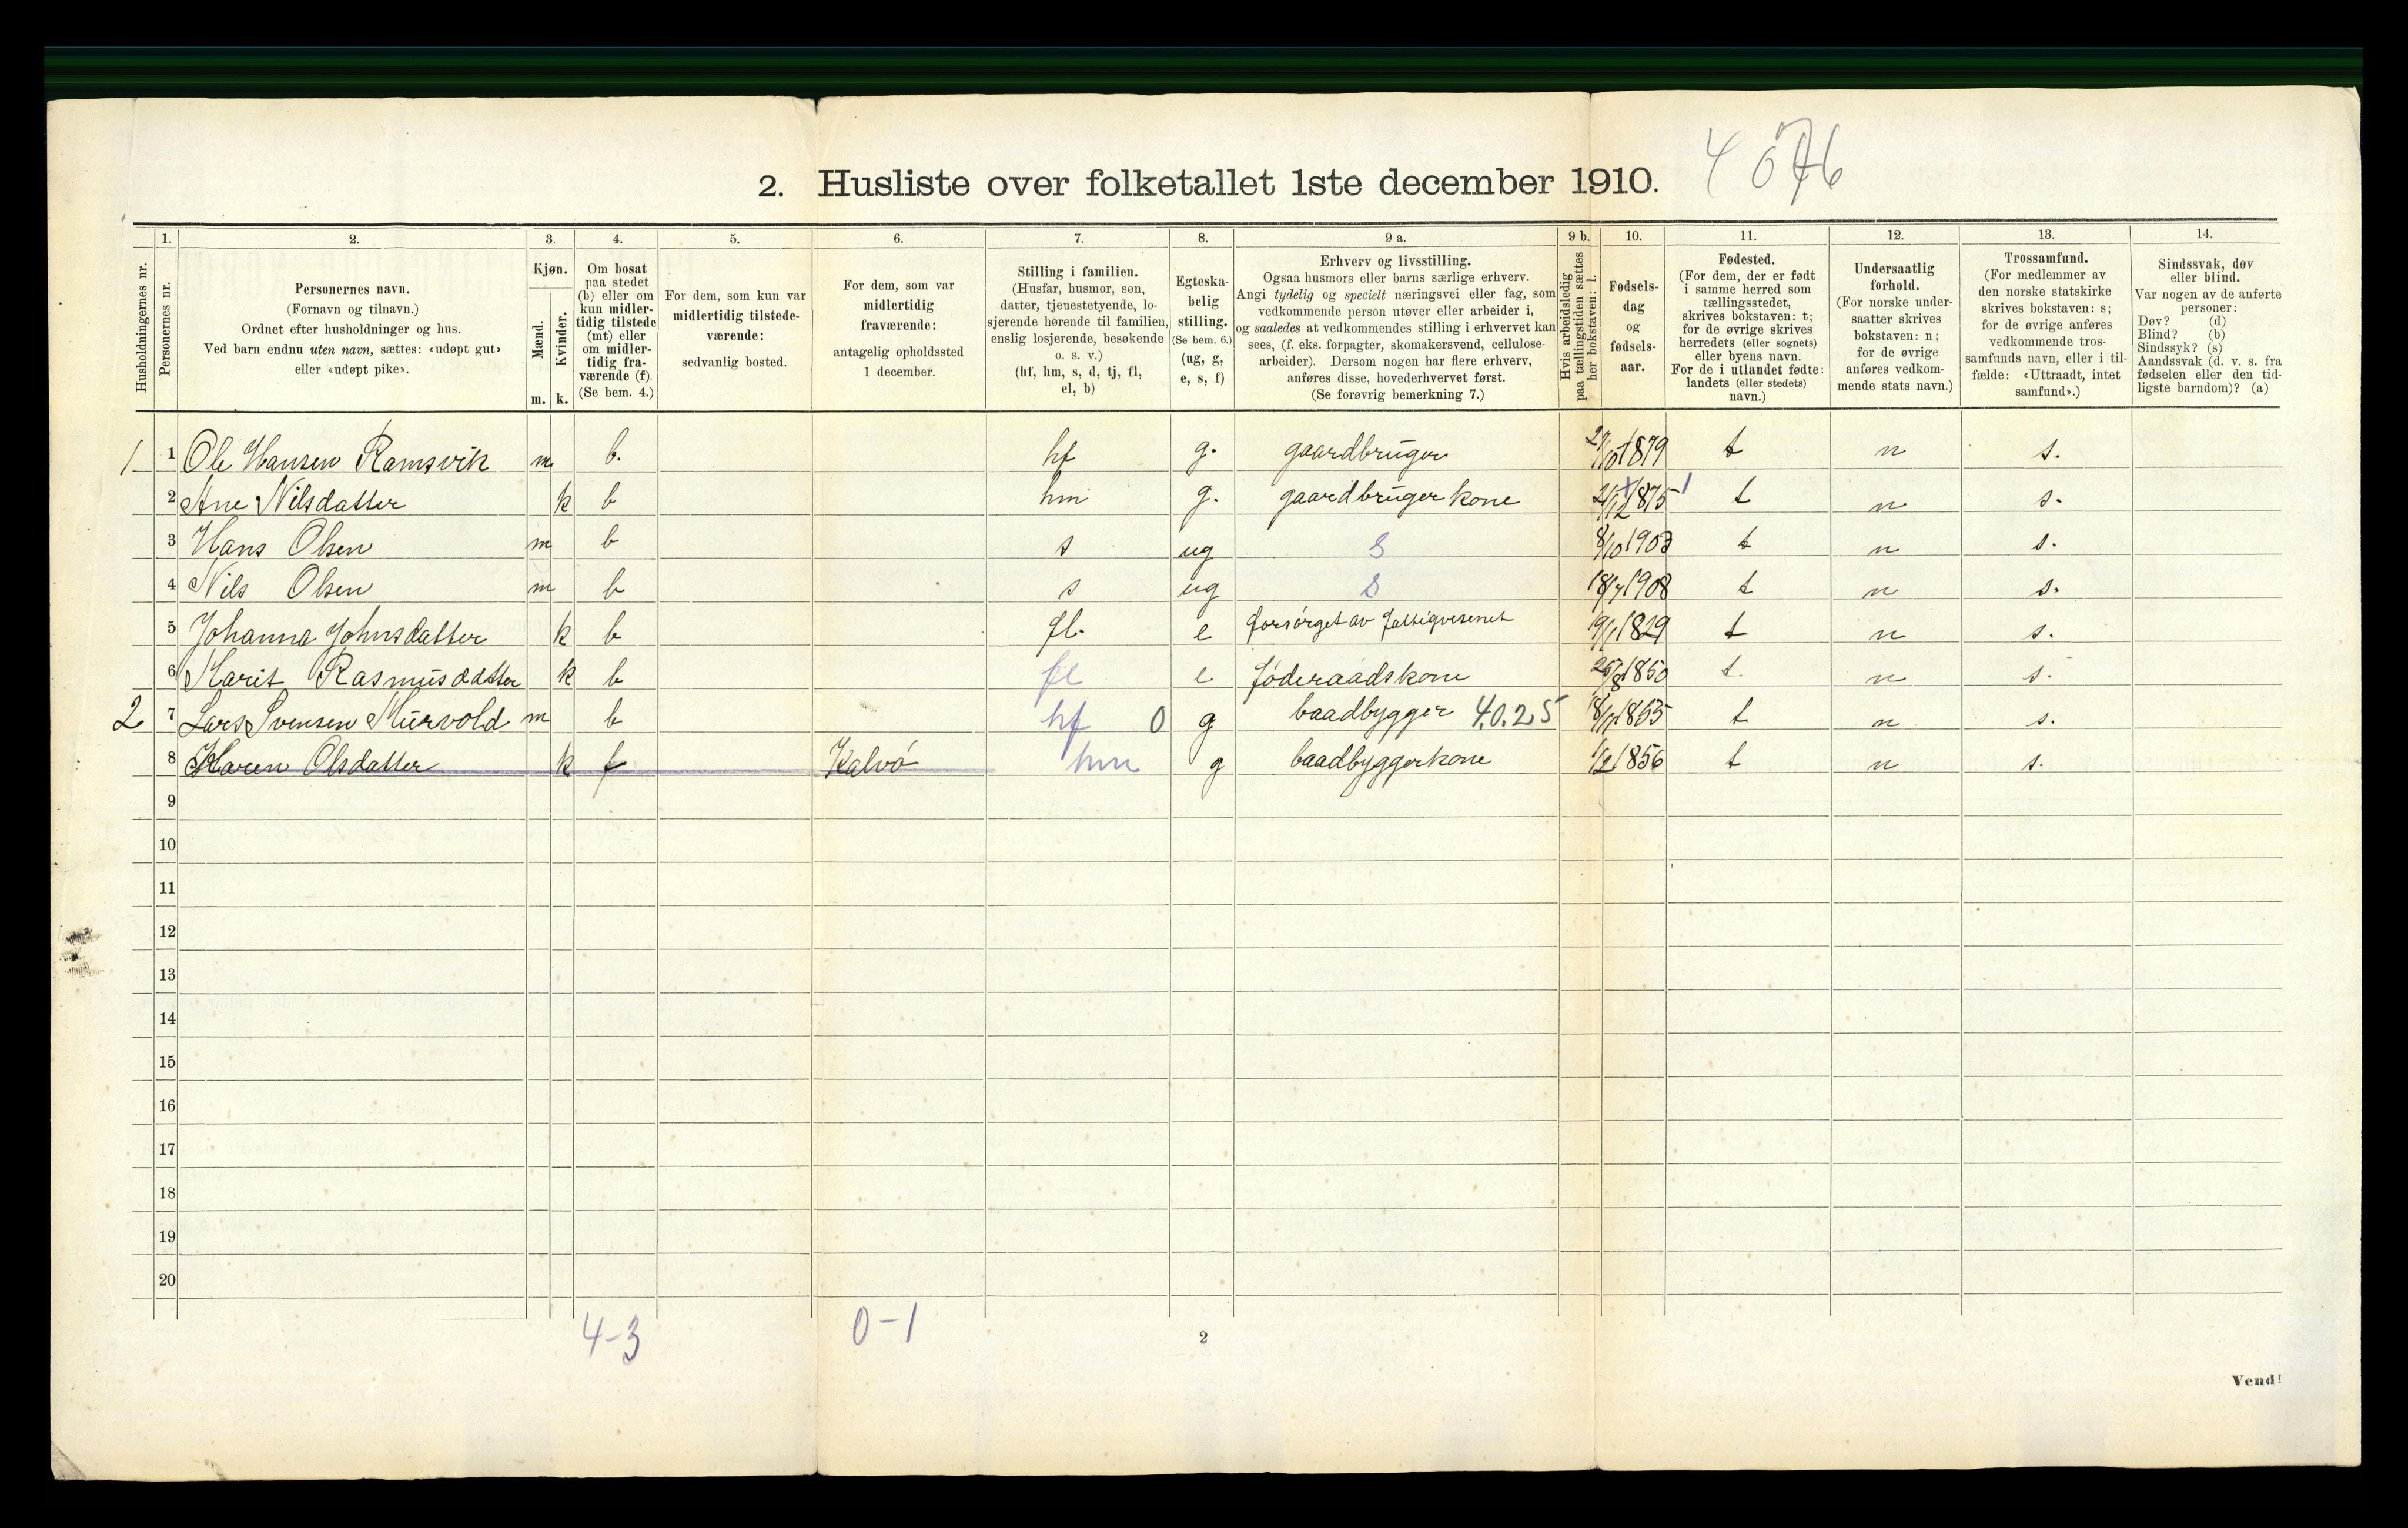 4 076
2. Husliste over folketallet 1ste december 1910.
Husholdningernes nr.
1. Personernes nr.
2. Personernes navn.
(Fornavn og tilnavn.)
Ordnet efter husholdninger og hus.
Ved barn endnu uten navn, sættes: «udøpt gut»
eller «udøpt pike».
3. Kjøn.
Mænd. m.
Kvinder. k.
4. Om bosat
paa stedet
(b) eller om
kun midler-
tidig tilstede
(mt) eller
om midler-
tidig fra-
værende (f).
(Se bem. 4.)
5. For dem, som kun var
midlertidig tilstede-
værende:
sedvanlig bosted.
6. For dem, som var
midlertidig
fraværende:
antagelig opholdssted
1 december.
7. Stilling i familien.
(Husfar, husmor, søn,
datter, tjenestetyende, lo-
sjerende hørende til familien,
enslig losjerende, besøkende
o. s. v.)
(hf, hm, s, d, tj, fl,
el, b)
8. Egteska-
belig
stilling.
(Se bem. 6.)
(ug, g,
e, s, f)
9 a. Erhverv og livsstilling.
Ogsaa husmors eller barns særlige erhverv.
Angi tydelig og specielt næringsvei eller fag, som
vedkommende person utøver eller arbeider i,
og saaledes at vedkommendes stilling i erhvervet kan
sees, (f. eks. forpagter, skomakersvend, cellulose-
arbeider). Dersom nogen har flere erhverv,
anføres disse, hovederhvervet først.
(Se forøvrig bemerkning 7.)
9 b. Hvis arbeidsledig
paa tællingstiden sættes
her bokstaven: l.
10. Fødsels-
dag
og
fødsels-
aar.
11. Fødested.
(For dem, der er født
i samme herred som
tællingsstedet,
skrives bokstaven: t;
for de øvrige skrives
herredets (eller sognets)
eller byens navn.
For de i utlandet fødte:
landets (eller stedets)
navn.)
12. Undersaatlig
forhold.
(For norske under-
saatter skrives
bokstaven: n;
for de øvrige
anføres vedkom-
mende stats navn.)
13. Trossamfund.
(For medlemmer av
den norske statskirke
skrives bokstaven: s;
for de øvrige anføres
vedkommende tros-
samfunds navn, eller i til-
fælde: «Uttraadt, intet
samfund».)
14. Sindssvak, døv
eller blind.
Var nogen av de anførte
personer:
Døv? (d)
Blind? (b)
Sindssyk? (s)
Aandssvak (d. v. s. fra
fødselen eller den tid-
ligste barndom)? (a)
1 1 Ole Hansen Ramsvik m b. hf g. gaardbruger 27/10 1879 t n s.
2 Ane Nilsdatter k b hm g. gaardbruger kone 21/12 1875 t n s.
3 Hans Olsen m b s ug S 8/10 1903 t n s.
4 Nils Olsen m b s ug S 18/7 1908 t n s.
5 Johanna Johnsdatter k b fl. e forsørget av fattigvesenet 19/1 1829 t n s.
6 Marit Rasmusdatter k b fl e føderaadskone 1850 t. n s.
2 7 Lars Svensen Murvold m b hf 0 g baadbygger 4.0.25 t n s.
8 Karen Olsdatter k f Kalvø hm g baadbyggerkone 1/2 1856 t n s.
9
10
11
12
13
14
15
16
17
18
19
20
4-3 0-1
2
Vend!